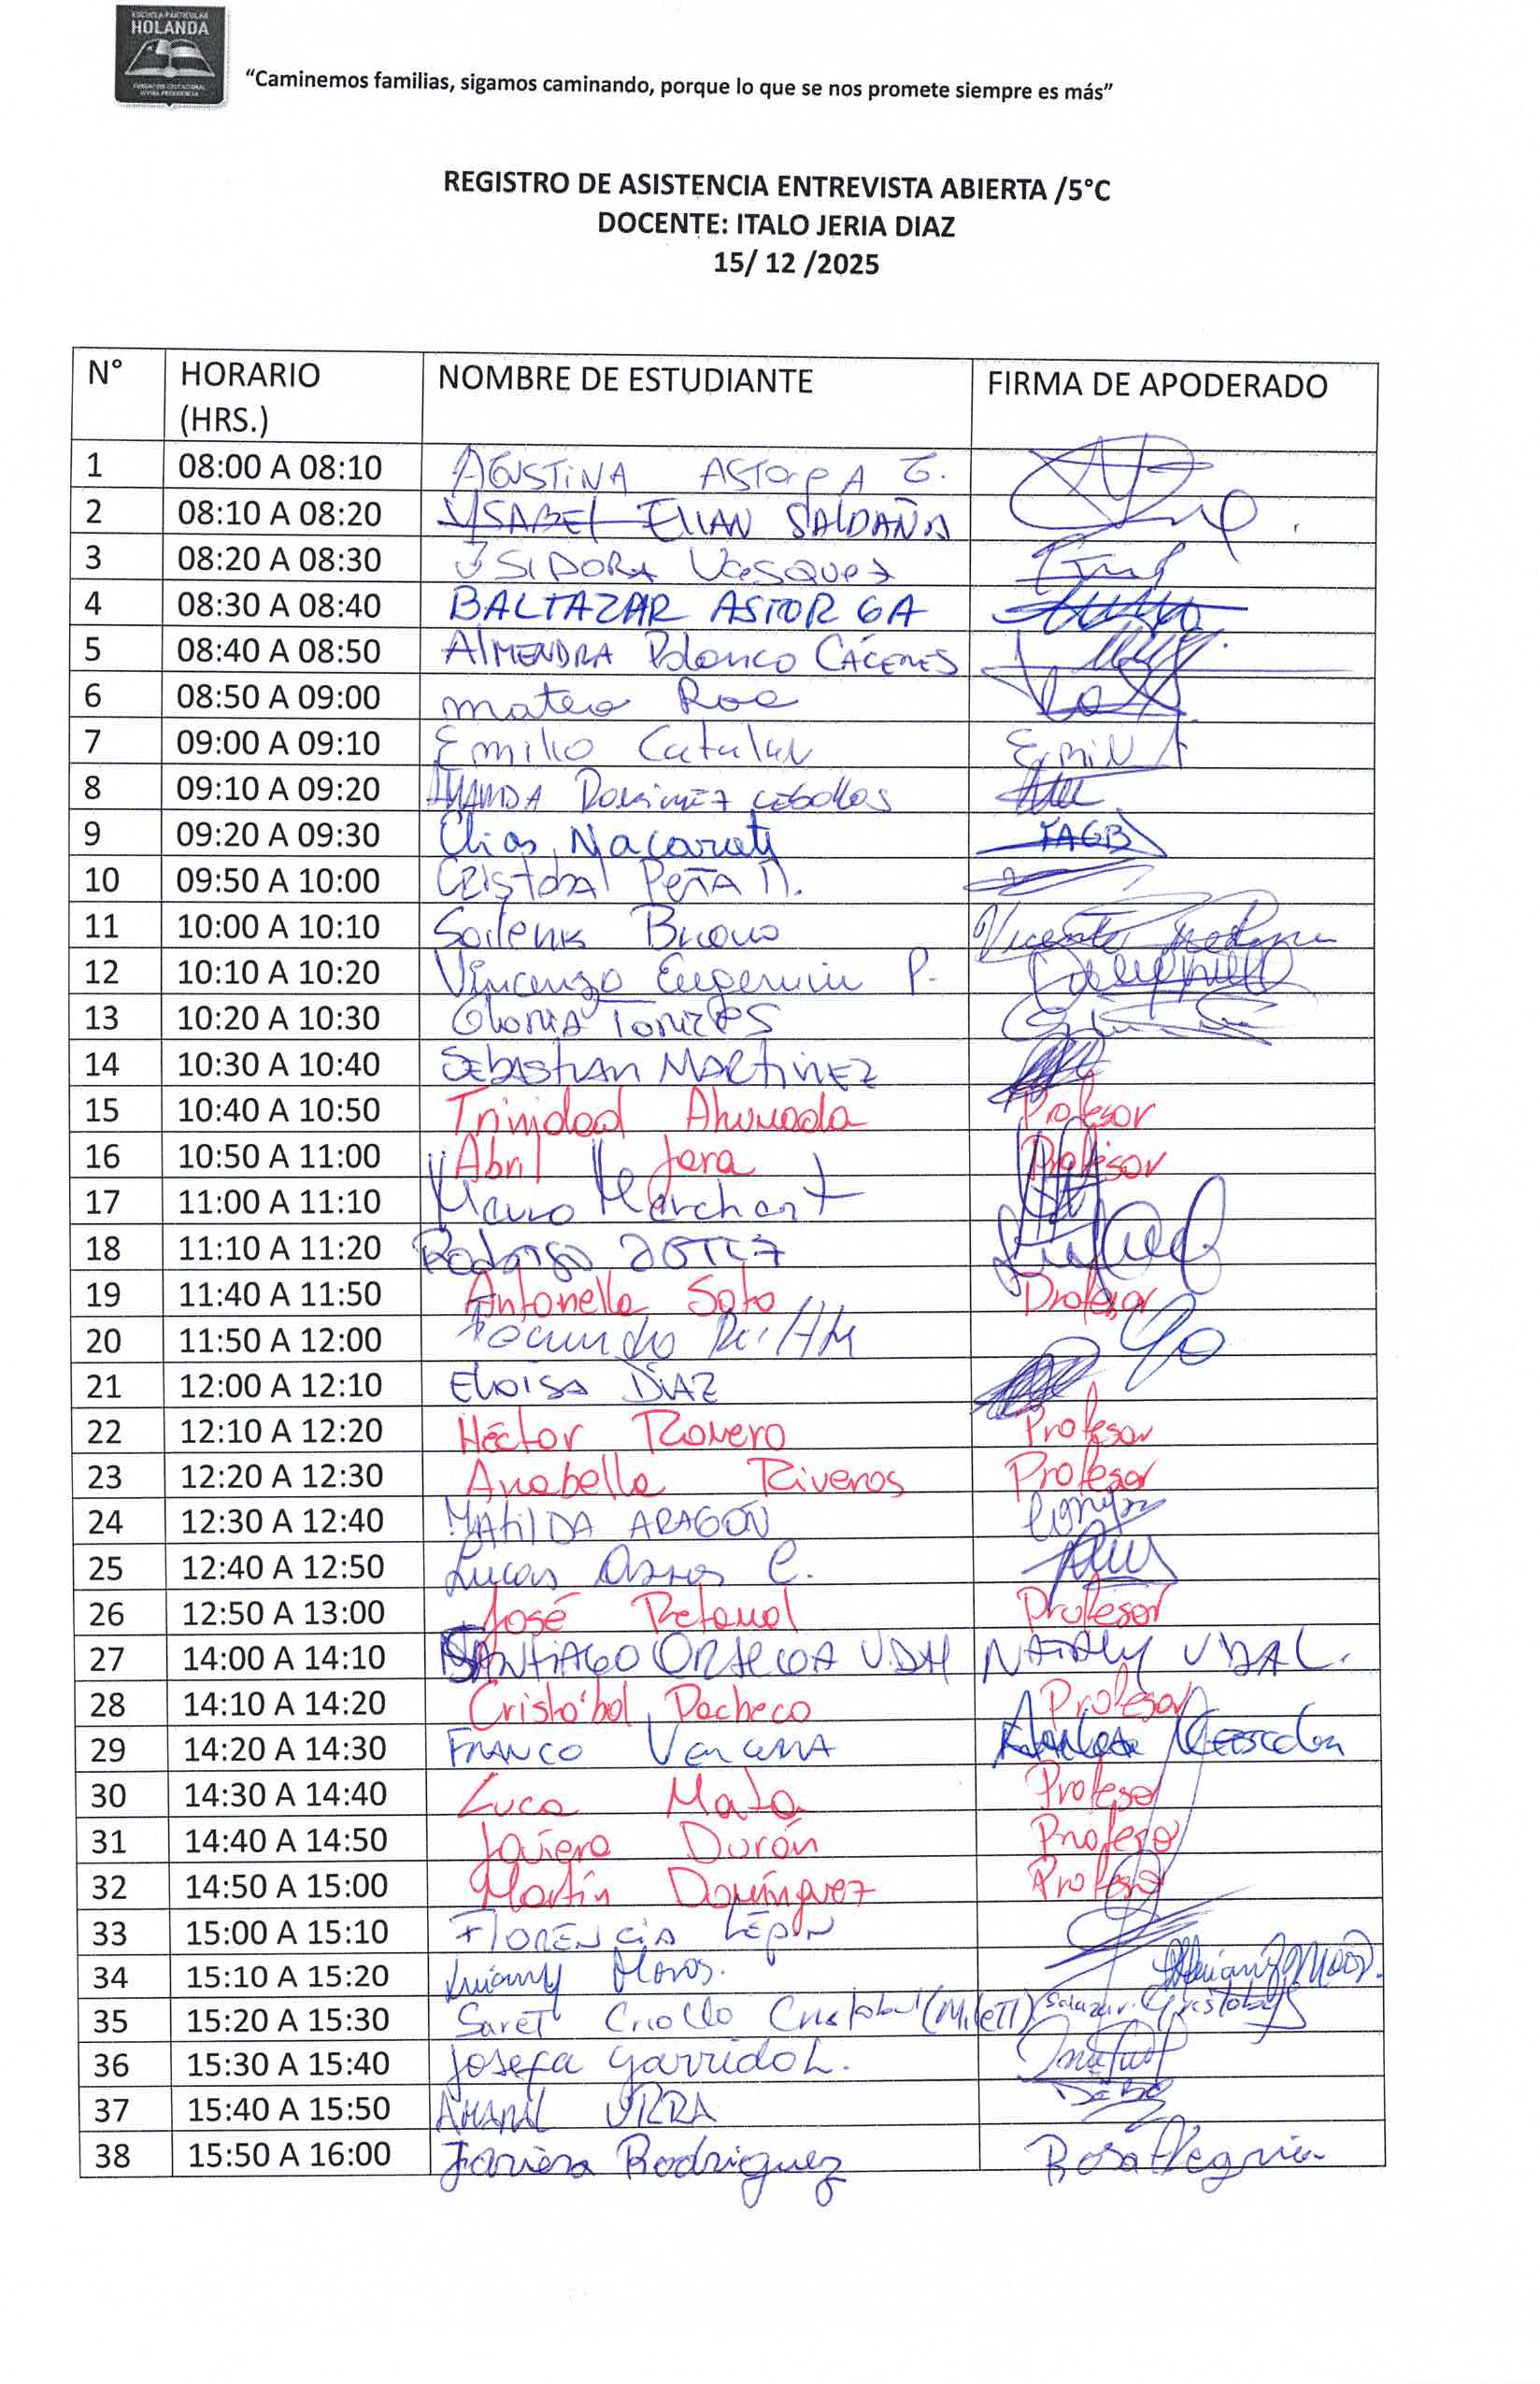 ESCUELA PARTICULAR
HOLANDA
"Caminemos familias, sigamos caminando, porque lo que se nos promete siempre es más"
REGISTRO DE ASISTENCIA ENTREVISTA ABIERTA /5°C
DOCENTE: ITALO JERIA DIAZ
15/ 12 /2025
N° HORARIO (HRS.) NOMBRE DE ESTUDIANTE FIRMA DE APODERADO
1 08:00 A 08:10 AGUSTINA ASTORGA G.
2 08:10 A 08:20 YSABEL ELIAN SALDAÑA
3 08:20 A 08:30 ISIDORA Vasquez
4 08:30 A 08:40 BALTAZAR ASTORGA
5 08:40 A 08:50 AlMENDRA Polanco CÁCERES
6 08:50 A 09:00 mateo Roa
7 09:00 A 09:10 Emilio Catalan
8 09:10 A 09:20 AMANDA cebollos
9 09:20 A 09:30 Elias JAGB
10 09:50 A 10:00 CRISTOBAl PEÑA
11 10:00 A 10:10 Bravo Vicente
12 10:10 A 10:20 Vincenzo Eugenin P.
13 10:20 A 10:30 GLORIA TORRES
14 10:30 A 10:40 SEBASTIAN MARTINEZ
15 10:40 A 10:50 Trinidad Ahumada Profesor
16 10:50 A 11:00 Abril Jara Profesor
17 11:00 A 11:10 Mauro Marchant
18 11:10 A 11:20 Rodrigo
19 11:40 A 11:50 Antonella Soto Profesor
20 11:50 A 12:00 Facundo
21 12:00 A 12:10 Eloisa DiAZ
22 12:10 A 12:20 Héctor Romero Profesor
23 12:20 A 12:30 Anabella Riveros Profesor
24 12:30 A 12:40 MATILDA ARAGÓN
25 12:40 A 12:50 Lucas C.
26 12:50 A 13:00 José Retamal Profesor
27 14:00 A 14:10 SANTIAGO ORTEGA VIDAL NATALY VIDAL.
28 14:10 A 14:20 Cristóbal Pacheco Profesor
29 14:20 A 14:30 FRANCO
30 14:30 A 14:40 Luca Mata Profesor
31 14:40 A 14:50 Javiera Durán Profesor
32 14:50 A 15:00 Martín Domínguez Profesor
33 15:00 A 15:10 FlORENCIA LÉPIN
34 15:10 A 15:20
35 15:20 A 15:30 Saret Criollo Cristobal (Milett) Salazar. Cristobal
36 15:30 A 15:40 Josefa Garrido L.
37 15:40 A 15:50 URRA
38 15:50 A 16:00 Javiera Rodriguez Rosa Alegria